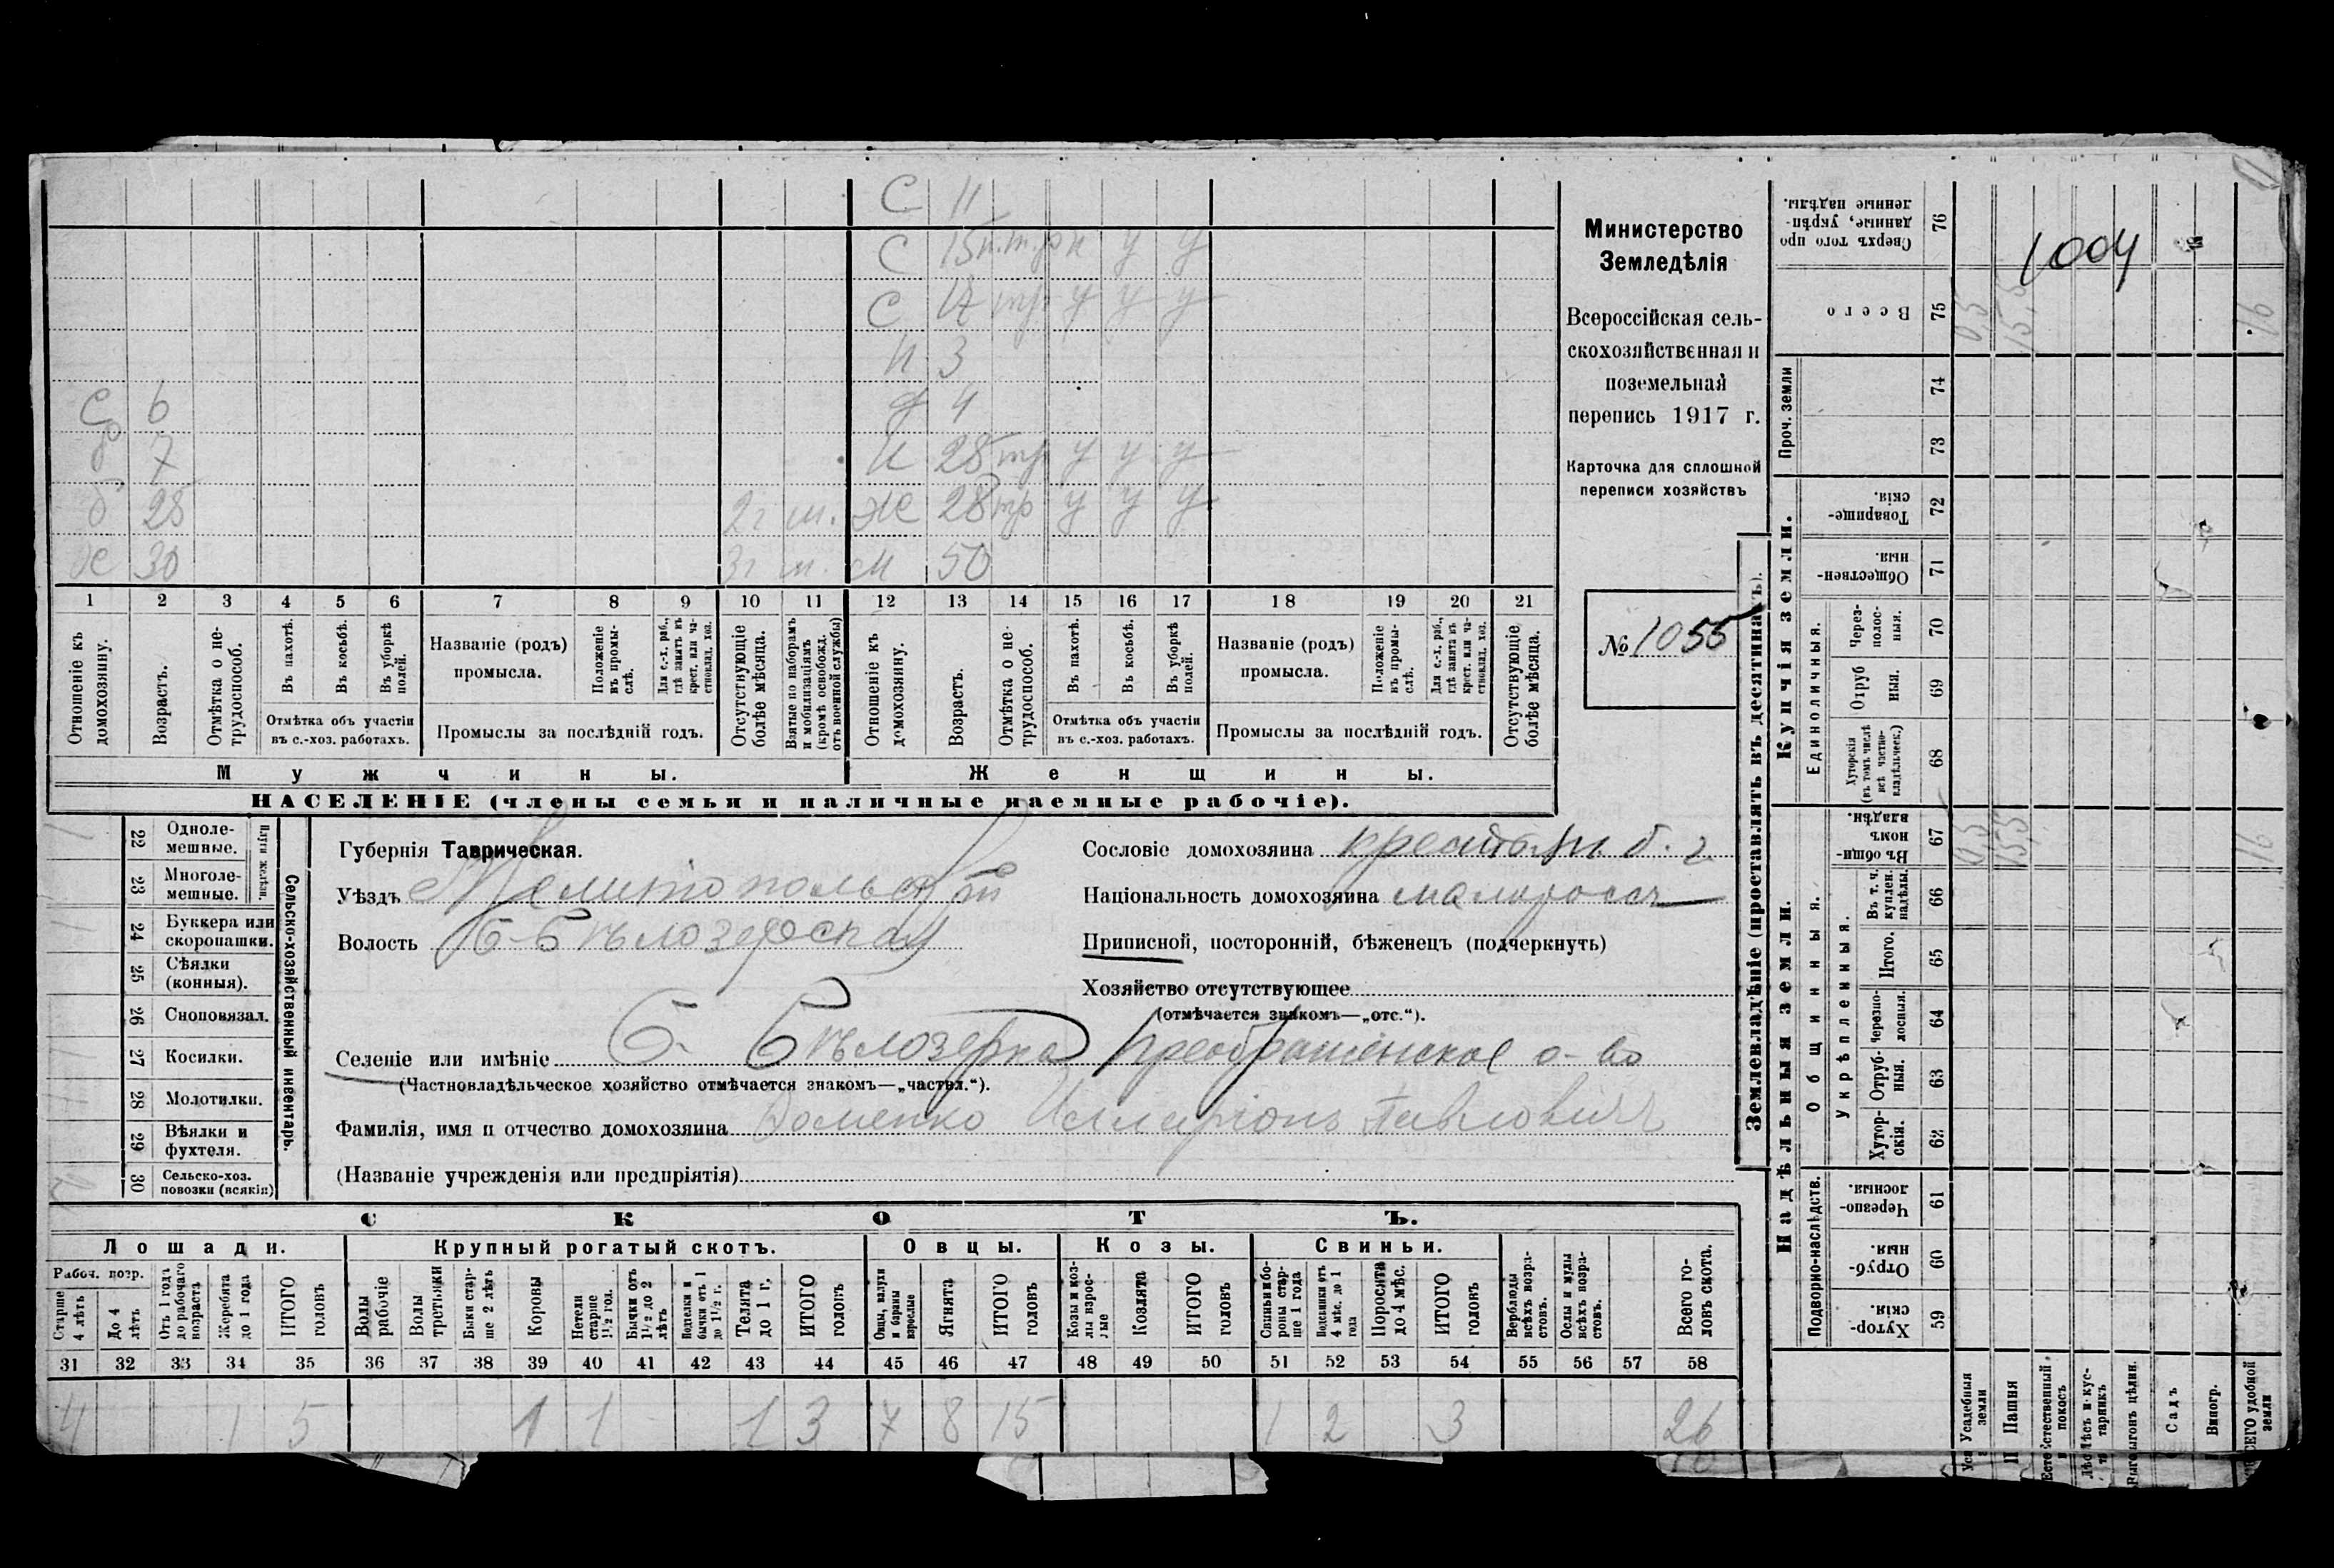 С 11
С 15 п.т.р н у у
С 17 тр у у у
п 3
С 6 д 4
б 7 н 28 тр у у у
б 25 2г м. Ж 28 тр у у у
Х 30 3г м. М 50
1 2 3 4 5 6 7 8 9 10 11 12 13 14 15 16 17 18 19 20 21
Отношеніе къ домохозяину.
Возрастъ.
Отмѣтка о не-трудоспособ.
Въ пахотѣ.
Въ косьбѣ.
Въ уборкѣ полей.
Отмѣтка объ участіи въ с.-хоз. работахъ.
Названіе (родъ) промысла.
Положеніе въ промы-слѣ.
Для с.-х. раб., гдѣ занятъ въ крест. или ча-стновлад. хоз.
Промыслы за послѣдній годъ.
Отсутствующіе болѣе мѣсяца.
Взятые по наборамъ и мобилизаціямъ (кромѣ освобожд. отъ военной службы)
Отношеніе къ домохозяину.
Возрастъ.
Отмѣтка о не-трудоспособ.
Въ пахотѣ.
Въ косьбѣ.
Въ уборкѣ полей.
Отмѣтка объ участіи въ с.-хоз. работахъ.
Названіе (родъ) промысла.
Положеніе въ промы-слѣ.
Для с.-х. раб., гдѣ занятъ въ крест. или ча-стновлад. хоз.
Промыслы за послѣдній годъ.
Отсутствующіе болѣе мѣсяца.
Мужчины.
Женщины.
НАСЕЛЕНІЕ (члены семьи и наличные наемные рабочіе).
Министерство
Земледѣлія
Всероссійская сель-
скохозяйственная и
поземельная
перепись 1917 г.
Карточка для сплошной
переписи хозяйствъ
№ 1055
22 Однолемешные.
23 Многолемешные.
Плуги желѣзн.
24 Буккера или скоропашки.
25 Сѣялки (конныя).
26 Сноповязал.
27 Косилки.
28 Молотилки.
29 Вѣялки и фухтеля.
30 Сельско-хоз. повозки (всякія)
Сельско-хозяйственный инвентарь.
Губернія Таврическая.
Уѣздъ Мелитопольскій
Волость Б-Бѣлозерская
Сословіе домохозяина крестьян б. г.
Національность домохозяина малоросс
Приписной, посторонній, бѣженецъ (подчеркнуть)
Хозяйство отсутствующее
(отмѣчается знакомъ—„отс.“).
Селеніе или имѣніе Б. Бѣлозерка Преображенское о-во
(Частновладѣльческое хозяйство отмѣчается знакомъ—„частвл.“).
Фамилія, имя и отчество домохозяина Доменко Илларіонъ Павловичъ
(Названіе учрежденія или предпріятія)
СКОТЪ.
Лошади. Крупный рогатый скотъ. Овцы. Козы. Свиньи.
Рабоч. возр.
Старше 4 лѣтъ
До 4 лѣтъ
Отъ 1 года до рабочаго возраста
Жеребята до 1 года
ИТОГО головъ
Волы рабочіе
Волы третьяки
Быки стар-ше 2 лѣтъ
Коровы
Нетели старше 1½ год.
Бычки отъ 1½ до 2 лѣтъ
Подтелки и бычки отъ 1 до 1½ г.
Телята до 1 г.
ИТОГО головъ
Овцы, валухи и бараны взрослые
Ягнята
ИТОГО головъ
Козы и коз-лы взрос-лые
Козлята
ИТОГО головъ
Свиньи и бо-ровы стар-ше 1 года
Подсвинки отъ 4 мѣс. до 1 года
Поросята до 4 мѣс.
ИТОГО головъ
Верблюды всѣхъ возра-стовъ.
Ослы и мулы всѣхъ возра-стовъ.
Всего го-ловъ скота.
31 32 33 34 35 36 37 38 39 40 41 42 43 44 45 46 47 48 49 50 51 52 53 54 55 56 57 58
4 1 5 1 1 1 3 7 8 15 1 2 3 26
Землевладѣніе (проставлять въ десятинахъ).
Купчія земли.
Надѣльныя земли.
Проч. земли
Единоличныя.
Общинныя.
Укрѣпленныя.
Подворно-наслѣдств.
Сверхъ того про данные, укрѣп-ленные надѣлы. 76
Всего 75
74
73
Товарище-скія. 72
Обществен-ныя. 71
Через-полос-ныя. 70
Отруб ныя. 69
Хуторскія (въ томъ числѣ всѣ частно-владѣльческ.) 68
Въ общи-номъ владѣн. 67
Въ т. ч. куплен. надѣлы. 66
Итого. 65
Черезпо-лосныя. 64
Отруб-ныя. 63
Хутор-скія. 62
Черезпо-лосныя. 61
Отруб-ныя. 60
Хутор-скія. 59
1004
0,5 15,5 16
0,5 15,5 16
Усадебныя земли
Пашня
Естественный покосъ
Лѣсъ и кус-тарникъ
Выгонъ цѣлин.
Садъ
Виногр.
ВСЕГО удобной земли